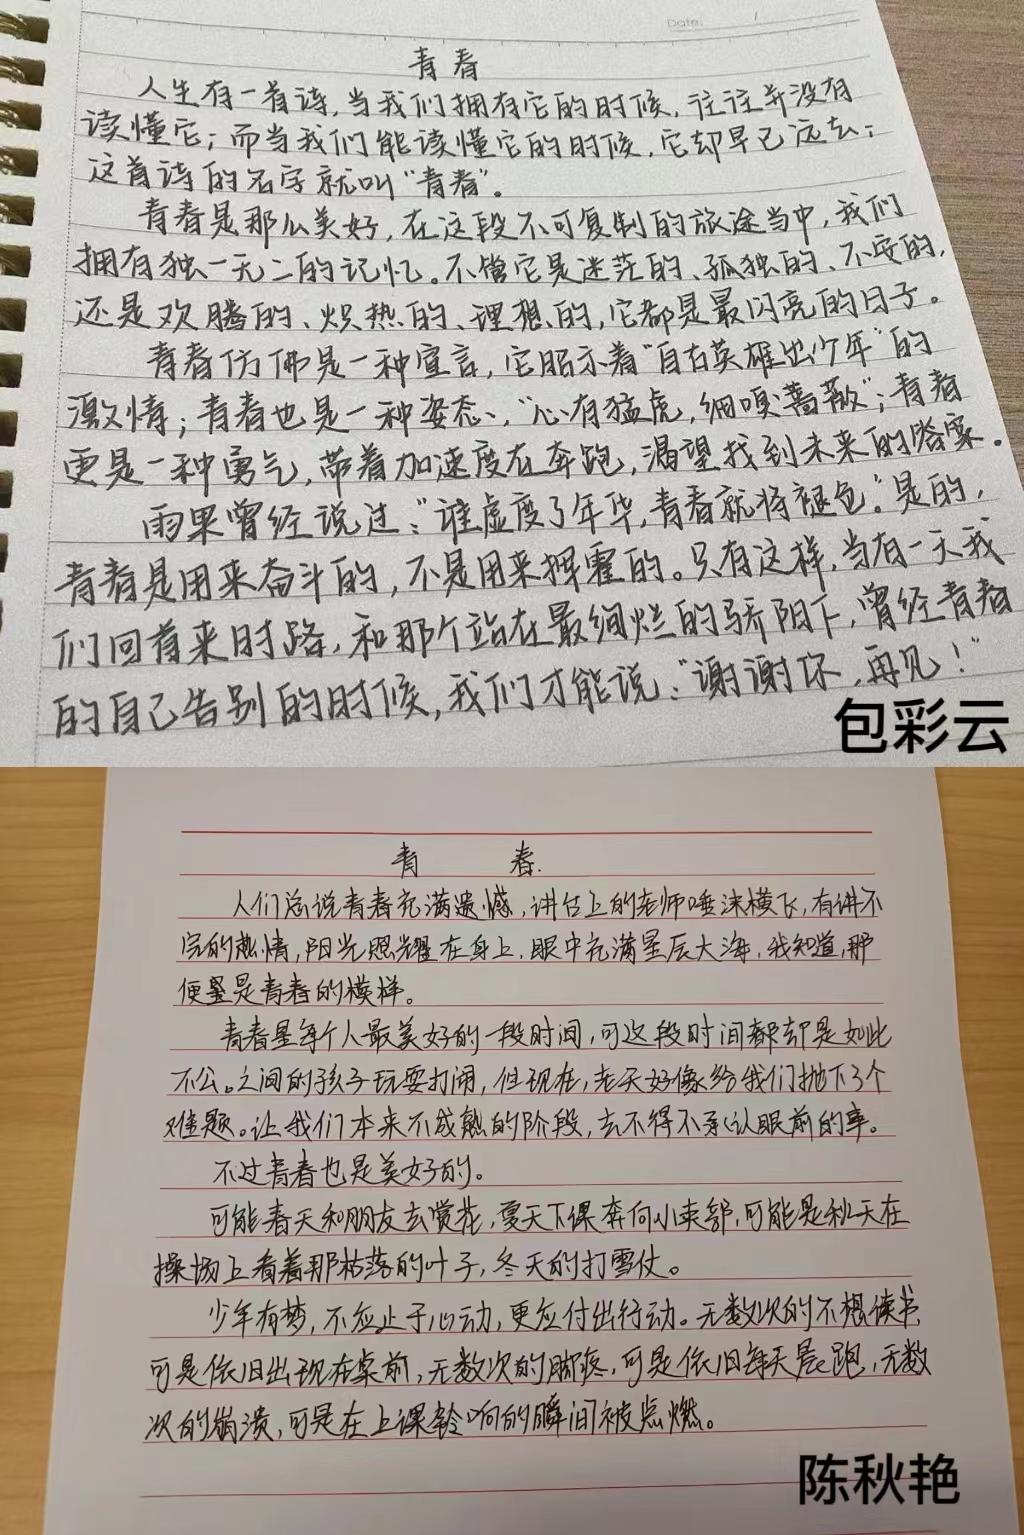 Date: /
青春
人生有一首诗,当我们拥有它的时候,往往并没有
读懂它;而当我们能读懂它的时候,它却早已远去;
这首诗的名字就叫“青春”。
青春是那么美好,在这段不可复制的旅途当中,我们
拥有独一无二的记忆。不管它是迷茫的、孤独的、不安的,
还是欢腾的、炽热的、理想的,它都是最闪亮的日子。
青春仿佛是一种宣言,它昭示着“自古英雄出少年”的
激情;青春也是一种姿态、“心有猛虎,细嗅蔷薇”;青春
更是一种勇气,带着加速度在奔跑,渴望找到未来的答案。
雨果曾经说过:“谁虚度了年华,青春就将褪色。”是的,
青春是用来奋斗的,不是用来挥霍的。只有这样,当有一天我
们回首来时路,和那个站在最绚烂的骄阳下,曾经青春
的自己告别的时候,我们才能说:“谢谢你,再见!”
包彩云
青 春.
人们总说青春充满遗憾,讲台上的老师唾沫横飞,有讲不
完的热情,阳光照耀在身上,眼中充满星辰大海,我知道,那
便是青春的模样。
青春是每个人最美好的一段时间,可这段时间都却是如此
不公。之间的孩子玩耍打闹,但现在,老天好像给我们抛下了个
难题。让我们本来不成熟的阶段,去不得不承认眼前的事。
不过青春也是美好的。
可能春天和朋友去赏花,夏天下课奔向小卖部,可能是秋天在
操场上看着那枯落的叶子,冬天的打雪仗。
少年有梦,不应止于心动,更应付出行动。无数次的不想读书,
可是依旧出现在桌前,无数次的脚疼,可是依旧每天晨跑,无数
次的崩溃,可是在上课铃响的瞬间被点燃。
陈秋艳